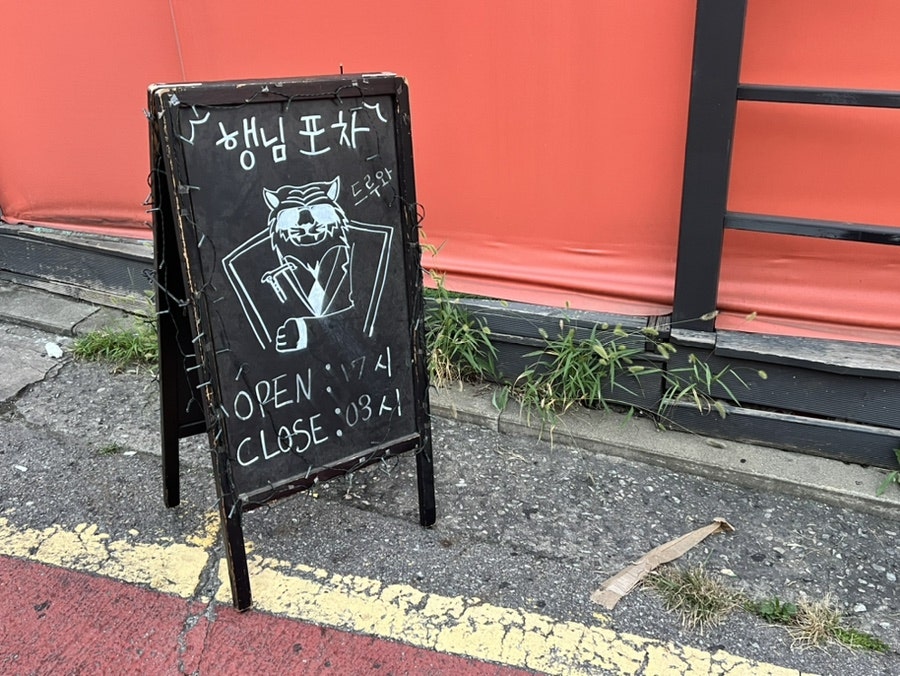 행님 포차
드루와
OPEN : 17시
CLOSE : 03시